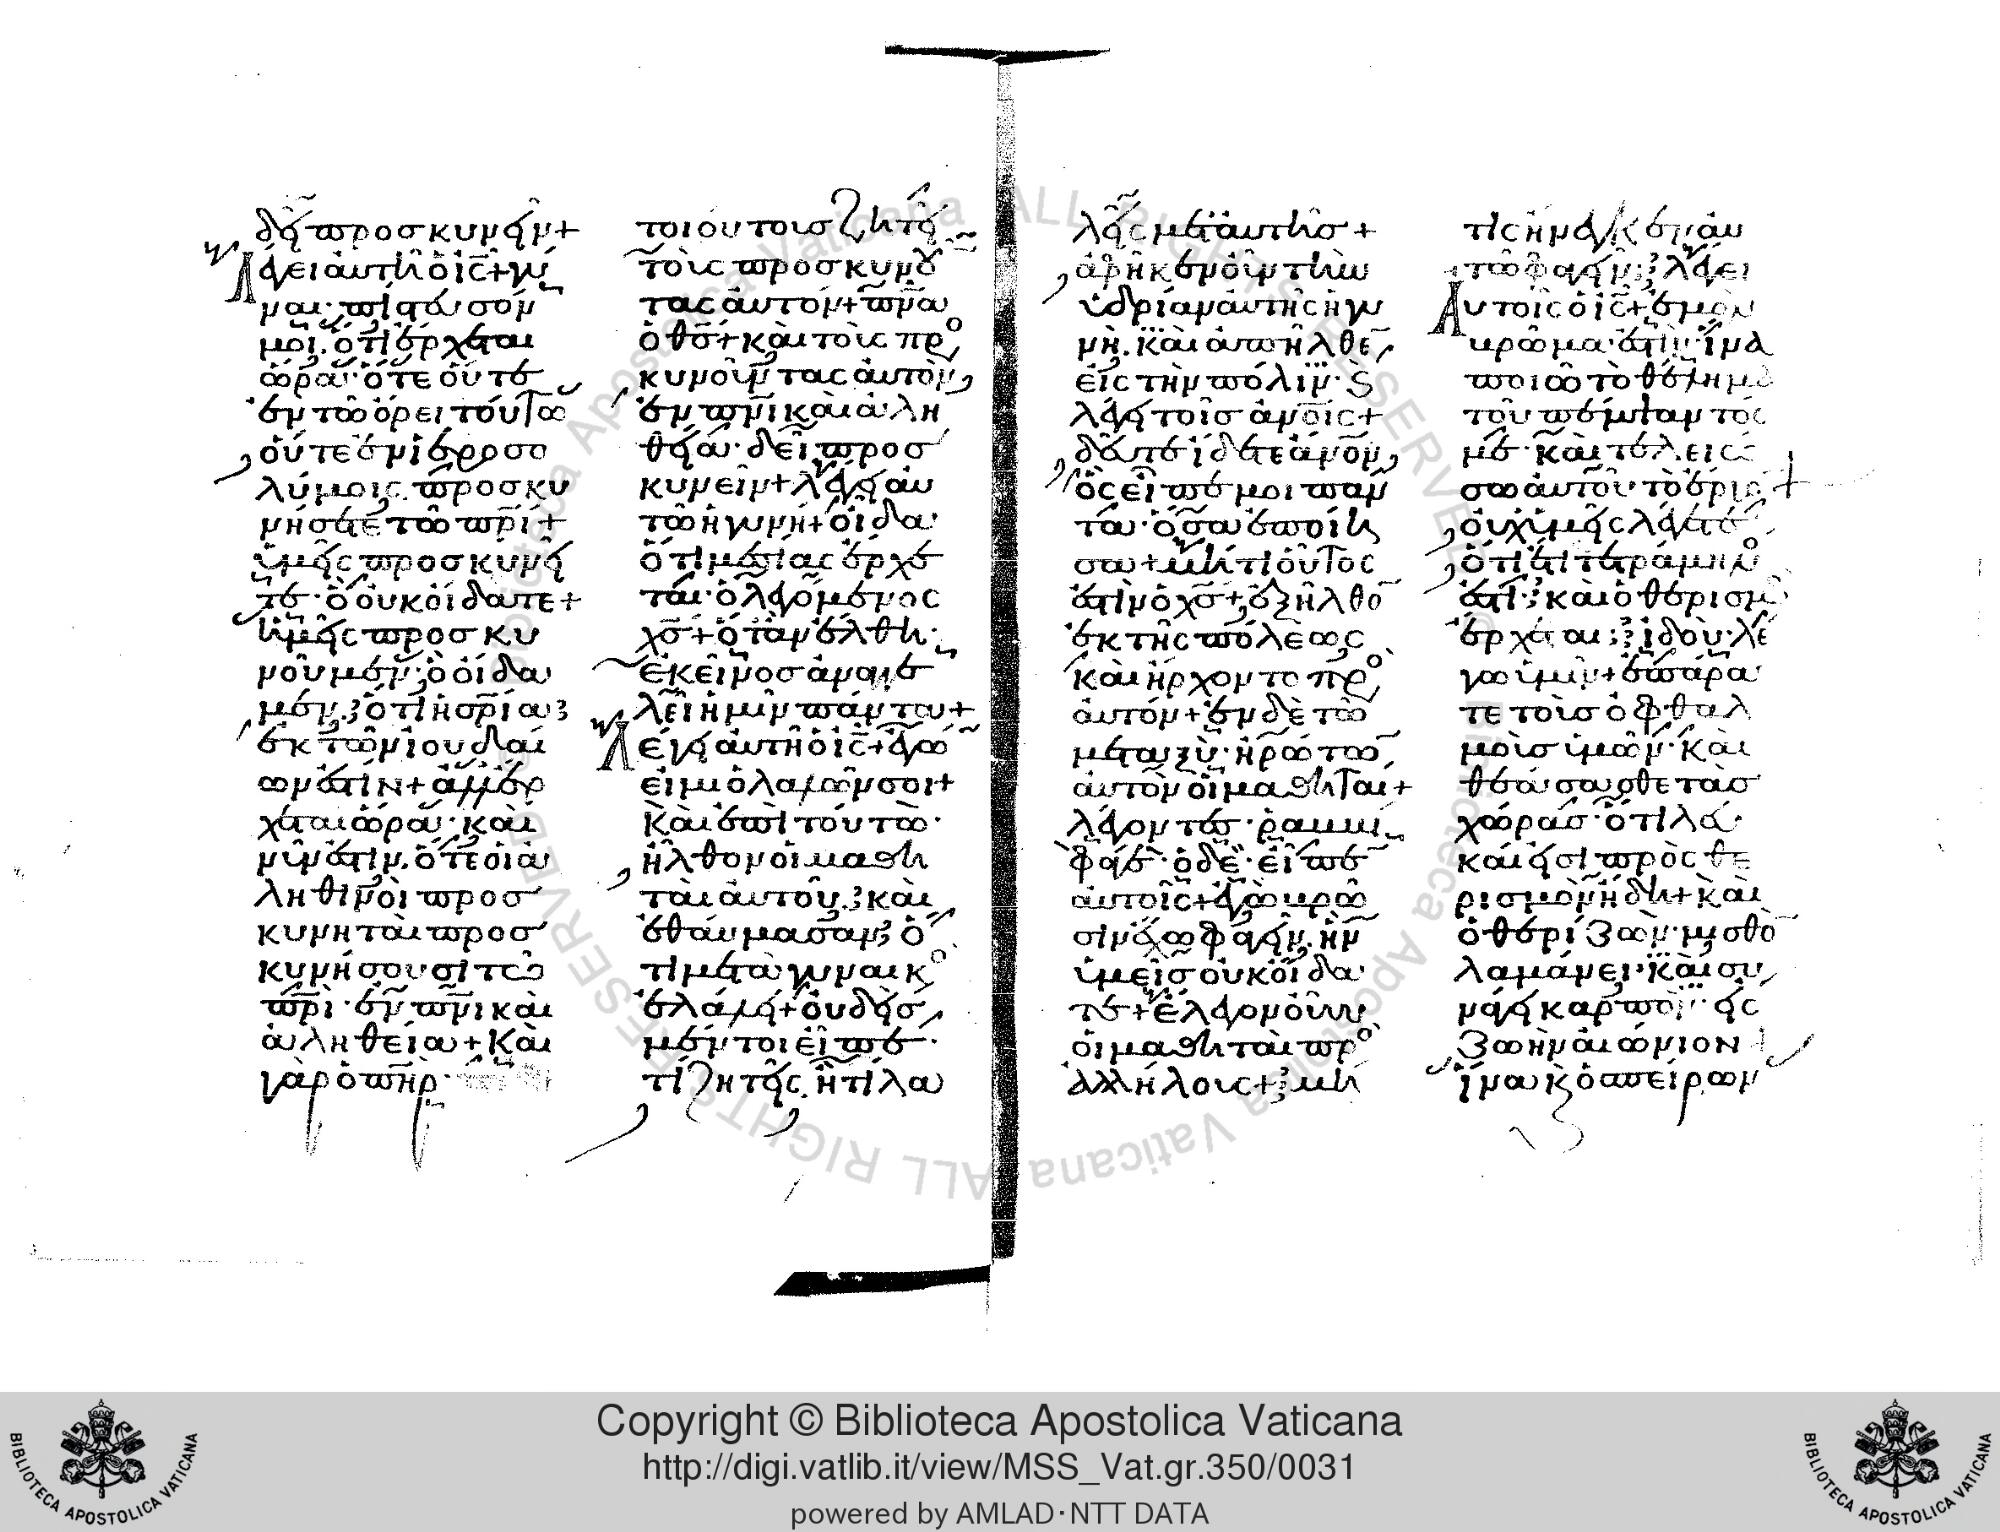 δεῖ προσκυνεῖν+
Λέγει αὐτῆ ὁ ις̅+ γύ
ναι· πίστευσόν
μοι. ὅτι ἔρχεται
ὥρα· ὅτε οὔτε
ἐν τῶ ὄρει τούτω
οὔτε ἐν ἱεροσο
λύμοις προσκυ
νήσετε τῶ πρι̅+
ὑμεῖς προσκυνεῖ
τε· ὃ οὐκ οἴδατε+
ἡμεῖς προσκυ
νοῦμεν· ὃ οἴδα
μεν· ὅτι ἡ σρ̅ία
ἐκ τῶν ἰουδαί
ων ἐστὶν+ ἀλλ' ἔρ
χεται ὥρα· καὶ
νῦν ἐστιν. ὅτε οἱ ἀ
ληθινοὶ προσ
κυνηταὶ προσ
κυνήσουσι τῶ
πρι̅· ἐν πνι̅ καὶ
ἀληθεία+ Καὶ
γὰρ ὁ πηρ̅·
τοιούτους ζητεῖ
τοὺς προσκυνοῦ
τας αὐτόν+ πνα̅
ὁ θς̅+ καὶ τοὺς προ
κυνοῦντας αὐτὸν,
ἐν πνι̅ καὶ ἀλη
θεία· δεῖ προσ
κυνεῖν+ λέγει αὐ
τῶ ἡ γυνή+ οἶδα·
ὅτι μεσίας ἔρχε
ται· ὁ λεγόμενος
χς̅+ ὅταν ἔλθη·
ἐκεῖνος ἀναγγε
λεῖ ἡμῖν πάντα+
Λέγει αὐτῆ ὁ ις̅+ ἐγώ
εἰμι ὁ λαλῶν σοι+
Καὶ ἐπὶ τούτω·
ἦλθον οἱ μαθη
ταὶ αὐτοῦ. καὶ
ἐθαύμασαν ὅ
τι μετὰ γυναικὸ
ἐλάλει+ οὐδεὶς
μέντοι εἶπε·
τί ζητεῖς. ἢ τί λα
λεῖς μετ' αὐτῆς+
ἀφῆκεν οὖν τὴν
ὑδρίαν αὐτῆς ἡ γυ
νὴ. καὶ ἀπῆλθε
εἰς τὴν πόλιν· κ
λέγει τοῖς ανοις̅+
δεῦτε ἴδετε ανον̅
ὃς εἶπέ μοι πάν
τα· ὅσα ἐποίη
σα+ μήτι οὗτος
ἐστὶν ὁ χς̅+ ἐξῆλθο
ἐκ τῆς πόλεως
καὶ ἤρχοντο προ
αὐτόν+ ἐν δὲ τῶ
μεταξὺ· ἠρώτων
αὐτὸν οἱ μαθηταὶ+
λέγοντες· ραββι,
φάγε· ὁ δὲ· εἶπε
αὐτοῖς+ ἐγὼ βρῶ
σιν ἔχω φαγεῖν. ἣν
ὑμεῖς οὐκ οἴδα
τε+ ἔλεγον οὖν
οἱ μαθηταὶ πρὸ
ἀλλήλους+ μή
τις ἤνεγκεν αὐ
τῶ φαγεῖν; λέγει
Αὐτοῖς ὁ ις̅+ ἐμὸν
βρῶμα ἐστὶν· ἵνα
ποιῶ τὸ θέλημα
τοῦ πέμψαντός
με· καὶ τελειώ
σω αὐτοῦ τὸ ἔργο
οὐχ ὑμεῖς λέγετε
ὅτι ἔτι τετράμηνο
ἐστι· καὶ ὁ θερισμὸ
ἔρχεται; ἰδοὺ· λέ
γω ὑμῖν+ ἐπάρα
τε τοὺς ὀφθαλ
μοὺς ὑμῶν· καὶ
θεάσασθε τὰς
χώρας· ὅτι λευ
καί εἰσι πρὸς θε
ρισμὸν ἤδη+ Καὶ
ὁ θερίζων· μισθὸ
λαμβάνει· καὶ συ
νάγει καρπὸν· εἰς
ζωὴν αἰώνιον
ἵνα κ ὁ σπείρων